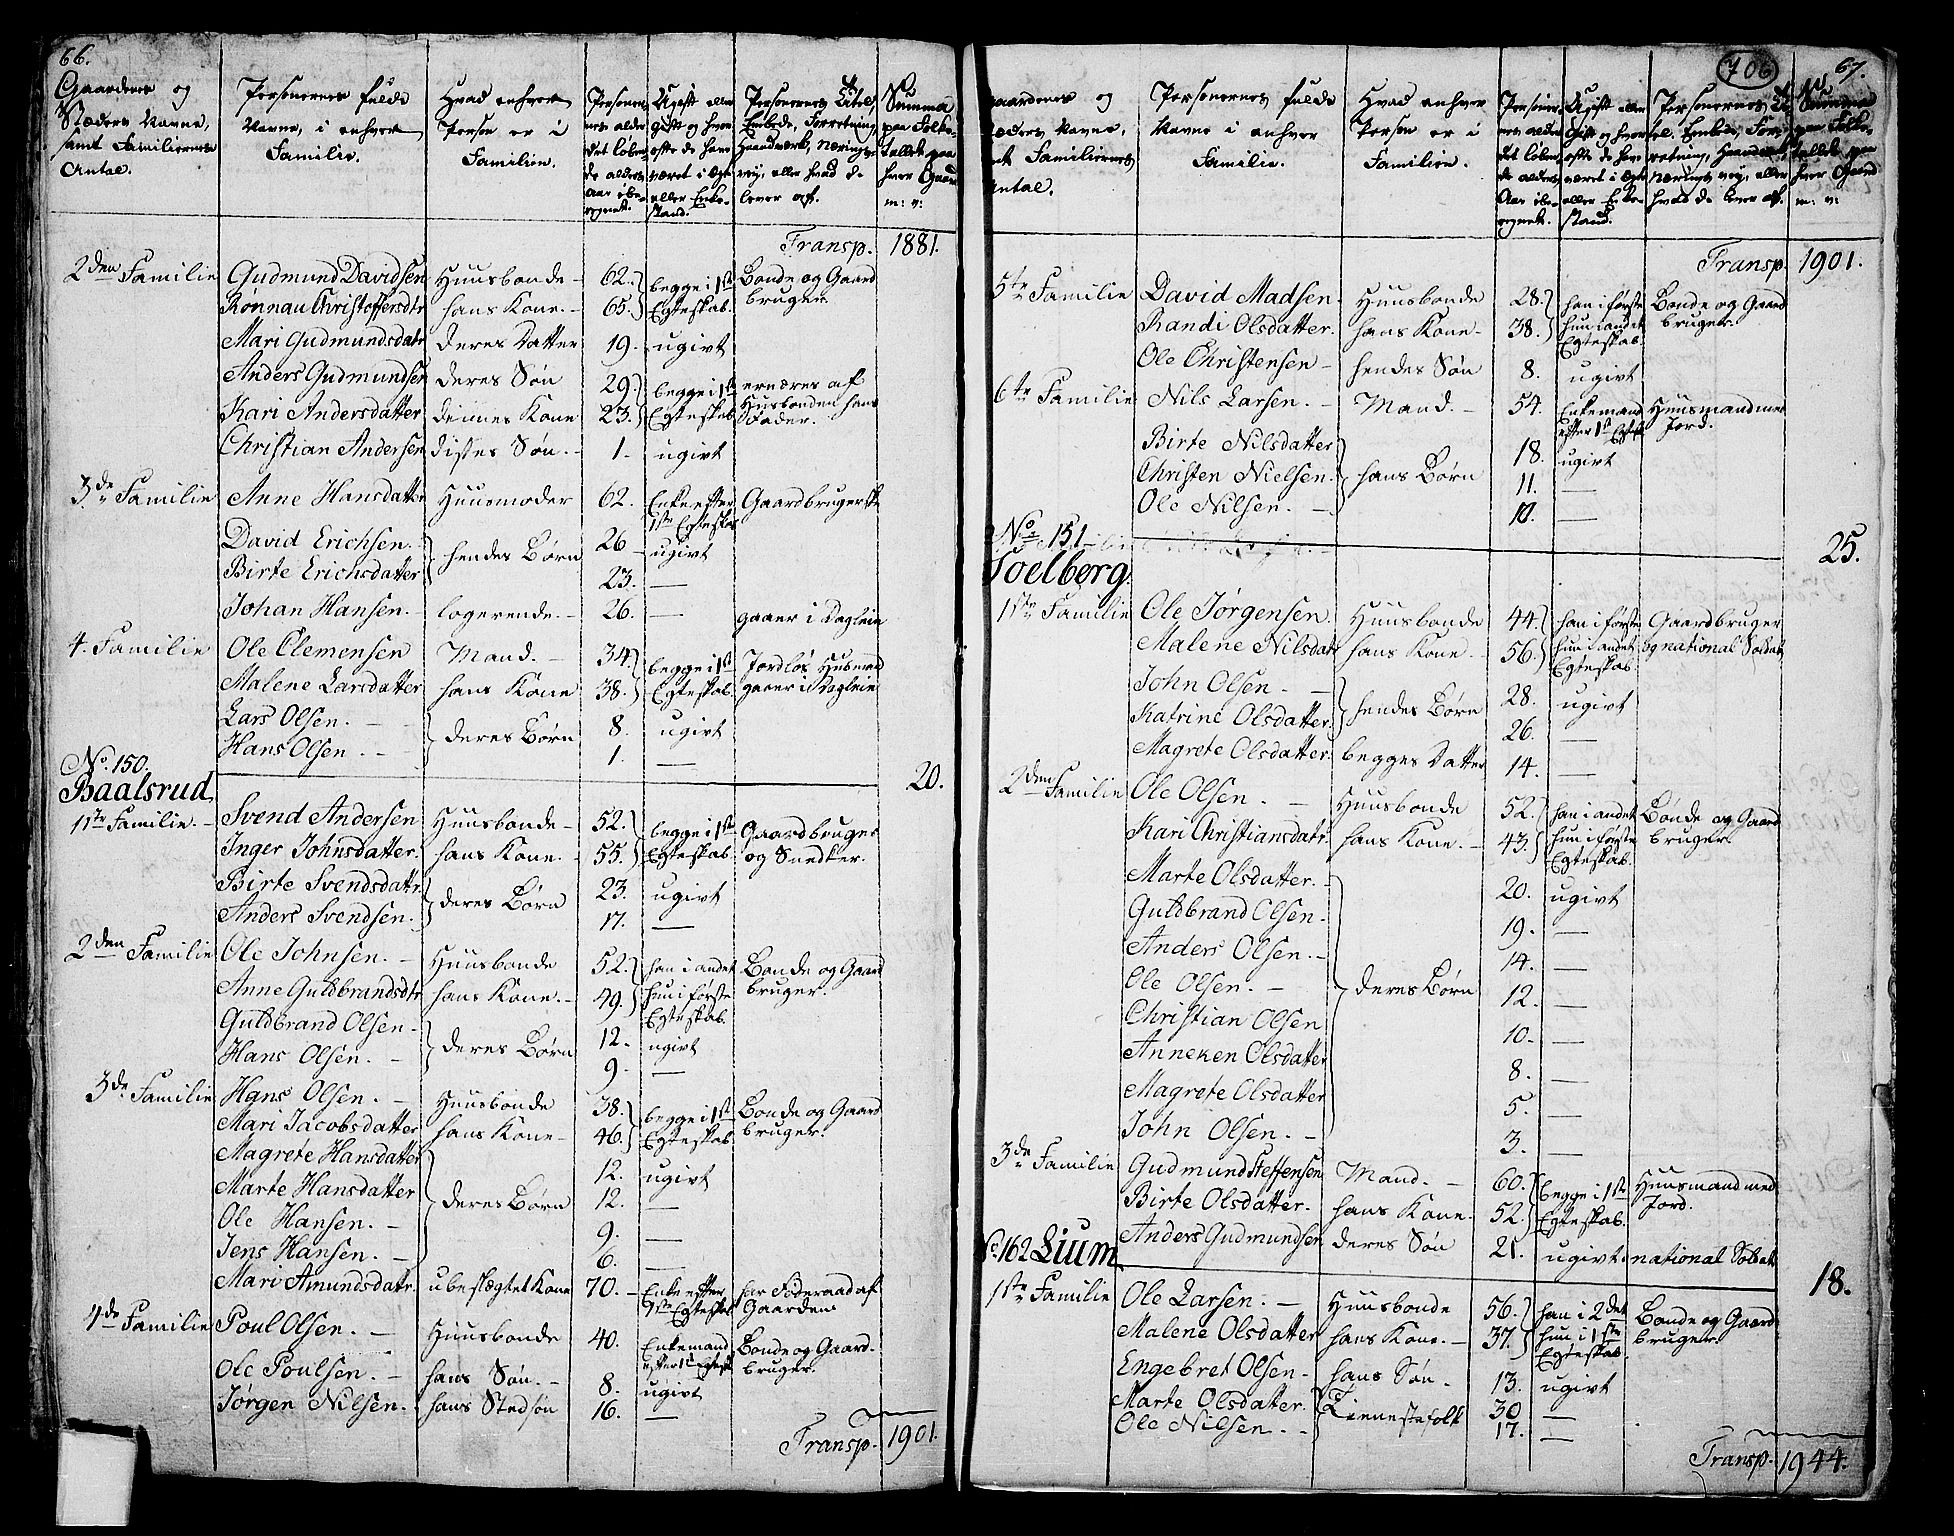 66.
Gaardenes og Stæders Navne, samt Familiernes Antal.
Personernes fulde Navne, i enhver Familie.
Hvad enhver Person er i Familien.
Personernes alder det løbende alders Aar iberegnet.
Ugift eller Gift og hvor ofte de have været i Egte eller Enkestand.
Personernes Titel, Embede, Forretning, Haandverk, Næringsvej, eller hvad de lever af.
Summa paa Folketallet paa hver Gaard
m: v:
Transp. 1881.
2den Familie Gudmund Davidsen Huusbonde - 62. begge i 1ste Egteskab. Bonde og Gaardbruger
Rønnau Christoffersdtr hans Kone. - 65.
Mari Gudmundsdatr deres Datter 19. ugivt
Anders Gudmundsen deres Søn 29. begge i 1ste Egteskab ernæres af Husbonden hans Fader.
Kari Andersdatter dennes Kone 23.
Christian Andersen disses Søn. - 1. ugivt
3de Familie Anne Hansdatter Huusmoder 62. Enke efter 1ste Egteskab Gaardbrugerske
David Erichsen. hendes Børn 26 ugivt
Birte Erichsdatter 23. —
Johan Hansen. logerende. - 26. — gaaer i Dagleie
4. Familie Ole Clemensen Mand. - 34. begge i 1ste Egteskab. Jordløs Husmand gaaer i Dagleie
Malene Larsdatter hans Kone 38.
Lars Olsen. - deres Børn 8. ugivt
Hans Olsen. - 1. —
No. 150.
Baalsrud 20.
1ste Familie. - Svend Andersen Huusbonde - 52. begge i 1ste Egteskab. Gaardbruger og Snedker.
Inger Johnsdatter. hans Kone. - 55.
Birte Svendsdatr. deres Børn 23. ugivt
Anders Svendsen. 17. —
2den Familie Ole Johnsen. - Huusbonde 52. han i andet hun i første Egteskab. Bonde og Gaardbruger.
Anne Guldbrandsdtr hans Kone. - 49.
Guldbrand Olsen - deres Børn 12. ugivt
Hans Olsen. - 9. —
3de Familie Hans Olsen. - Huusbonde 38. begge i 1ste Egteskab. Bonde og Gaardbruger.
Mari Jacobsdatter hans Kone - 46.
Magrete Hansdatter deres Børn 12. ugivt
Marte Hansdatter 12. —
Ole Hansen. - 9. —
Jens Hansen. - 6. —
Mari Amundsdatr. ubeslægtet Kone 70. - Enke efter 1ste Egteskab har Føderaad af Gaarden.
4de Familie Poul Olsen. - Huusbonde 40. Enkemand efter 1st Egtesk Bonde og Gaardbruger.
Ole Poulsen. - hans Søn. - 8. ugivt
Jørgen Nilsen. hans Stedsøn 16. —
Transp. 1901.
706
67.
Gaardenes og Stæders Navne, samt Familiernes Antal.
Personernes fulde Navne i enhver Familie.
Hvad enhver Person er i Familien.
Personernes alder det løbende alders Aar iberegnet.
Ugift eller Gift og hvor ofte de have været i Egte eller Enkestand.
Personernes Titel, Embede, Forretning, Haandverk, Nærings vej, eller hvad de lever af.
Summa paa Folketallet paa hver Gaard
m: v:
Transp. 1901.
5te Familie David Madsen. Huusbonde 28. han i første hun i andet Egteskab. Bonde og Gaardbruger.
Randi Olsdatter. hans Kone - 38.
Ole Christensen - hendes Søn 8. ugivt
6te Familie Nils Larsen. - Mand. - 54. Enkemand efter 1st Egtesk Huusmand med Jord.
Birte Nilsdatter hans Børn 18. ugivt
Christen Nielsen. 11. —
Ole Nilsen. - 10. —
No. 151 25.
Toelberg.
1ste Familie Ole Jørgensen Huusbonde 44. han i første hun i andet Egteskab. Gaardbruger og national Soldat
Malene Nilsdatr hans Kone. - 56.
John Olsen. - hendes Børn 28. ugivt
Katrine Olsdatter. 26. —
Magrete Olsdatter. begges Datter 14. —
2den Familie Ole Olsen. - Huusbonde 52. han i andet hun i første Egteskab. Bonde og Gaardbruger.
Kari Christiansdatr. hans Kone. - 43.
Marte Olsdatter. - deres Børn 20. ugivt
Guldbrand Olsen - 19. —
Anders Olsen. - 14. —
Ole Olsen. - 12. —
Christian Olsen 10. —
Anneken Olsdatter 8. —
Magrete Olsdatter 5. —
John Olsen. - 3. —
3de Familie Gudmund Steffensen Mand. - 60. begge i 1ste Egteskab. Huusmand med Jord.
Birte Olsdatter. hans Kone. 52.
Anders Gudmundsen deres Søn 21. ugivt national Soldat
No. 162 Lium 18.
1ste Familie Ole Larsen. - Huusbonde 56. han i 2det hun i 1ste Egteskab. Bonde og Gaardbruger.
Malene Olsdatter hans Kone. - 37.
Engebret Olsen - hans Søn - 13. ugivt
Marte Olsdatter. Tienestefolk 30 —
Ole Nilsen. - 17. —
Transp. 1944.